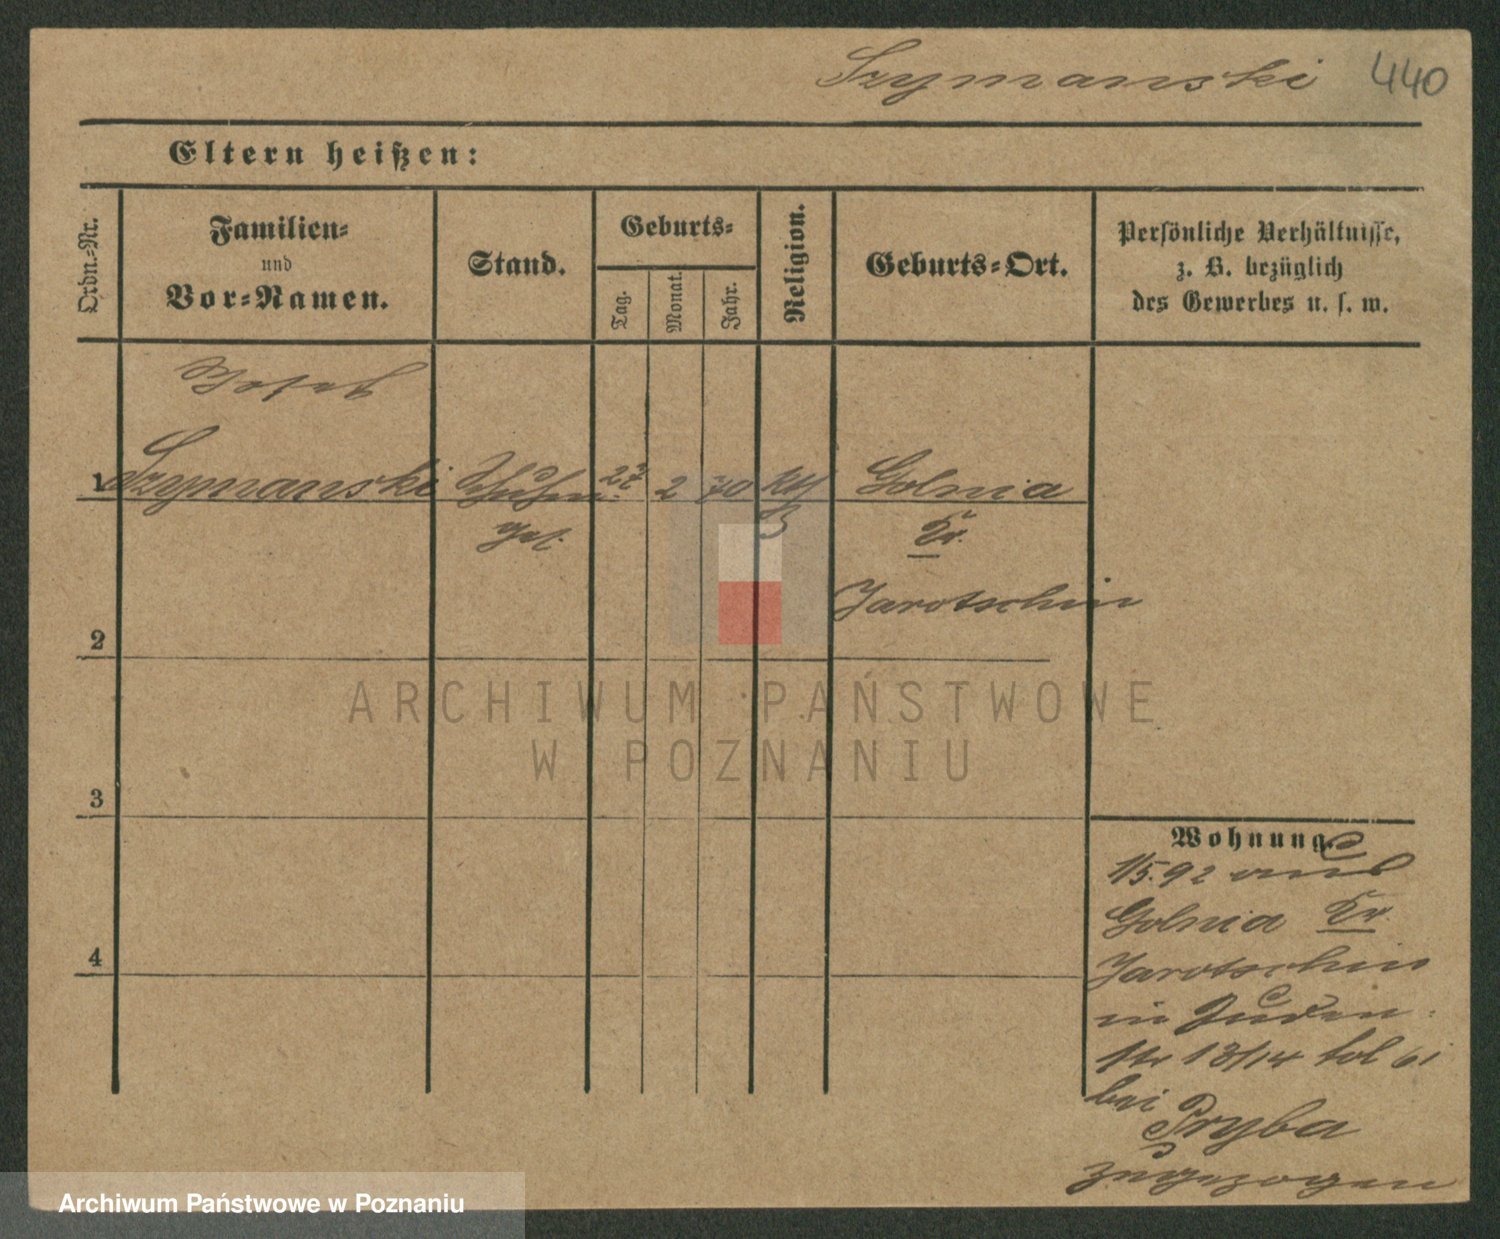 Szymanski 440
Eltern heißen:
Ordn.-Nr.
Familien-
und
Vor-Namen.
Stand.
Geburts-
Tag.
Monat.
Jahr.
Religion.
Geburts-Ort.
Persönliche Verhältnisse,
z. B. bezüglich
des Gewerbes u. s. w.
Josef
1 Szymanski 27 2 70 kth Golnia
Kr.
Jarotschin
2
3
4
Wohnung.
1/5.92 aus
Golnia Kr.
Jarotschin
in Juden-
str 13/14 bei
Pryba
zugezogen
ARCHIWUM PAŃSTWOWE
W POZNANIU
Archiwum Państwowe w Poznaniu